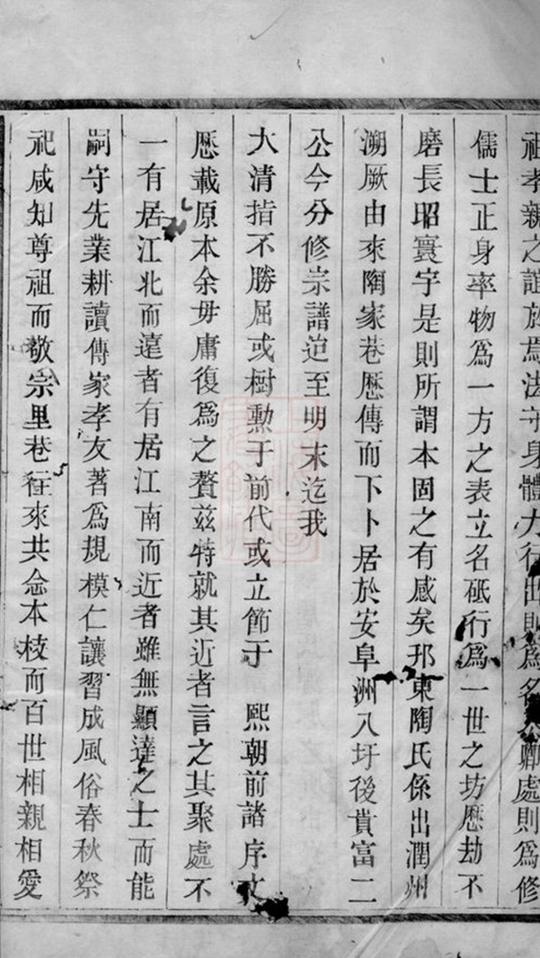 祖孝親之誼於焉法守身體力行出則為名卿處則為修
儒士正身率物為一方之表立名砥行為一世之坊歷劫不
磨長昭寰宇是則所謂本固之有感矣邗東陶氏係出潤州
溯厥由來陶家巷歷傳而下卜居於安阜洲八圩後貴富二
公今分修宗譜迨至明末迄我
大清指不勝屈或樹勲于前代或立節于　熙朝前諸序文
歷載原本余毋庸復為之贅茲特就其近者言之其聚處不
一有居江北而遠者有居江南而近者雖無顯達之士而能
嗣守先業耕讀傳家孝友著為規模仁讓習成風俗春秋祭
祀咸知尊祖而敬宗里巷往來共念本枝而百世相親相愛